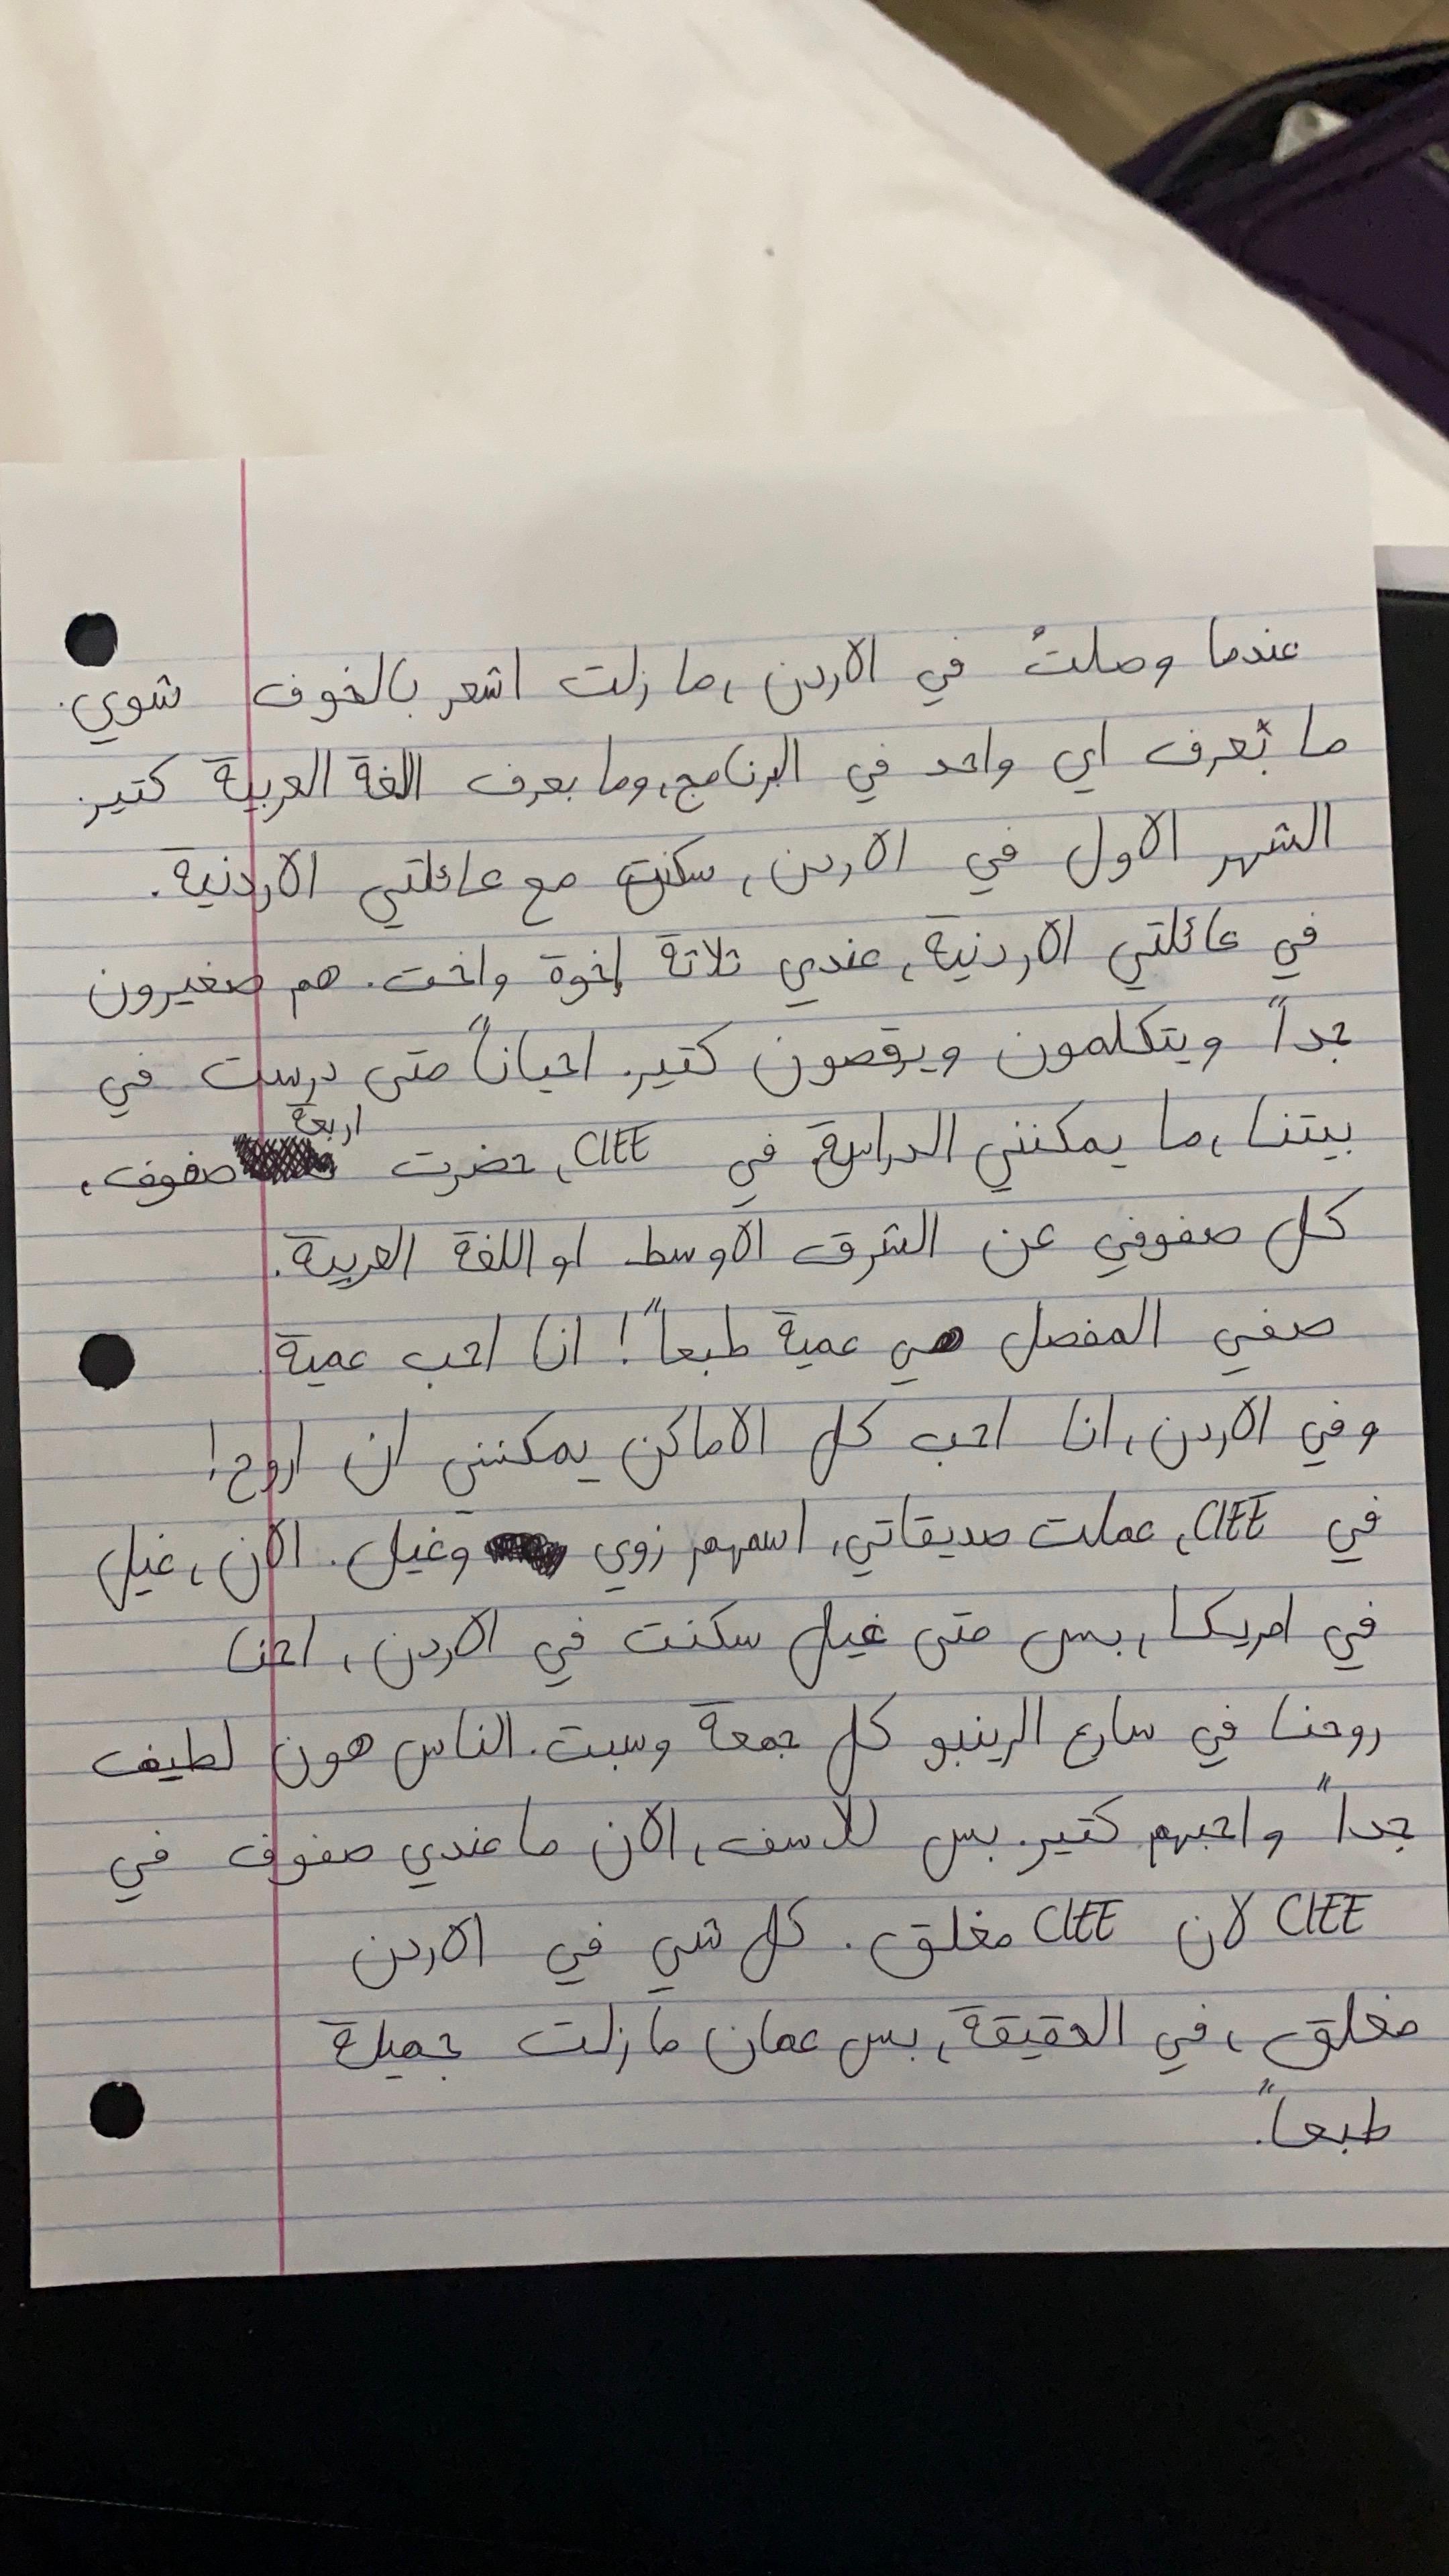 عندما وصلتُ في الاردن، ما زلت اشعر بالخوف شوي.
ما بَعرف اي واحد في البرنامج، وما بعرف الغة العربية كتير.
الشهر الاول في الاردن، سكنت مع عائلتي الاردنية.
في عائلتي الاردنية، عندي ثلاثة إخوة واخت. هم صغيرون
جداً ويتكلمون ويرقصون كتير. احياناً متى درست في
بيتنا، ما يمكنني الدراسة. في CIEE، حضرت اربعة صفوف،
كل صفوفي عن الشرق الأوسط او اللغة العربية.
صفي المفضل هي عمية طبعاً! انا احب عمية.
وفي الاردن، انا احب كل الاماكن يمكنني ان اروح!
في CIEE، عملت صديقاتي، اسمهم زوي وغيل. الآن، غيل
في امريكا، بس متى غيل سكنت في الاردن، احنا
روحنا في سارع الرينبو كل جمعة وسبت. الناس هون لطيف
جداً واحبهم كتير. بس للاسف، الان ما عندي صفوف في
CIEE لان CIEE مغلق. كل شي في الاردن
مغلق، في الحقيقة، بس عمان ما زلت جميلة
طبعاً.